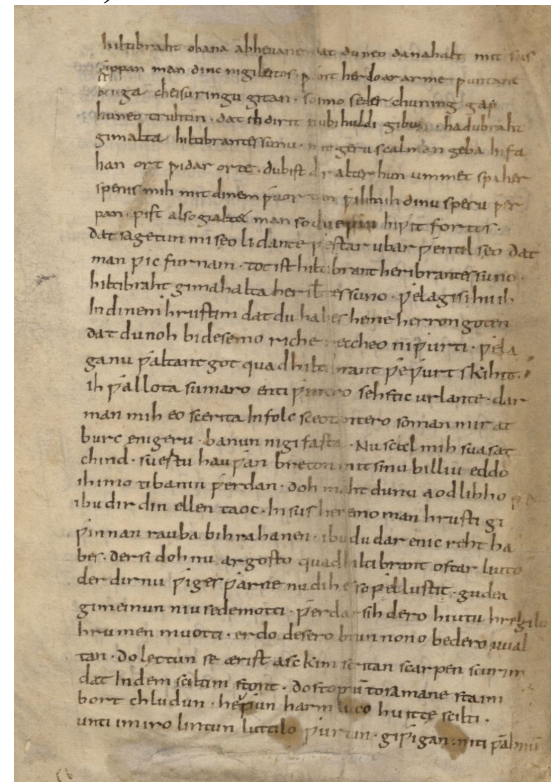 hiltibraht obana abheuane dat du neo danahalt mit sus
sippan man dinc ni gileitos. ƿant her do ar arme ƿuntane
bouga cheisuringu gitan. so imo seder chuning gap
huneo truhtin. dat ih dir it nu bi huldi gibu. hadubraht
gimalta hiltibrantes sunu. mit geru scal man geba infa
han ort ƿidar orte. du bist dir alter hun ummet spaher
spenis mih mit dinem ƿuortun ƿilihuh di nu speru ƿer
pan. pist also gialtet man so du eƿin inƿit fortos.
dat sagetun mi seo lidante ƿestar ubar ƿentilseo dat
man ƿic furnam. tot ist hiltibrant heribrantes suno.
hiltibraht gimahalta heribtes suno. ƿela gisihu ih
In dinem hrustim dat du habes heme herron goten
dat du noh bi desemo riche reccheo ni ƿurti. ƿela
ga nu ƿaltant got quad hiltibrant ƿeƿurt skihit.
ih ƿallota sumaro enti ƿintro sehstic ur lante. dar
man mih eo scerita In folc sceotantero so man mir at
burc enigeru. banun ni gifasta. Nu scal mih suasat
chind. suertu hauƿan breton mit sinu billiu eddo
ih imo ti banin ƿerdan. doh maht du nu aodlihho
ibu dir din ellen taoc. In sus heremo man hrusti gi
ƿinnan rauba bihrahanen. ibu du dar enic reht ha
bes. der si doh nu argosto quad hiltibrant ostarliuto
der dir nu ƿiges ƿarne nu dih es so ƿel lustit. gudea
gimeinun niuse de motti. ƿerdar sih dero hiutu hregilo
hrumen muotti. erdo desero brunnono bedero uual
tan. do lettun se ærist asckim scritan scarpen scurim
dat In dem sciltim stont. do stoptu to samane staim
bort chludun. heƿun harmlicco huitte scilti.
unti im iro lintun luttilo ƿurtun. giƿigan miti ƿabnum